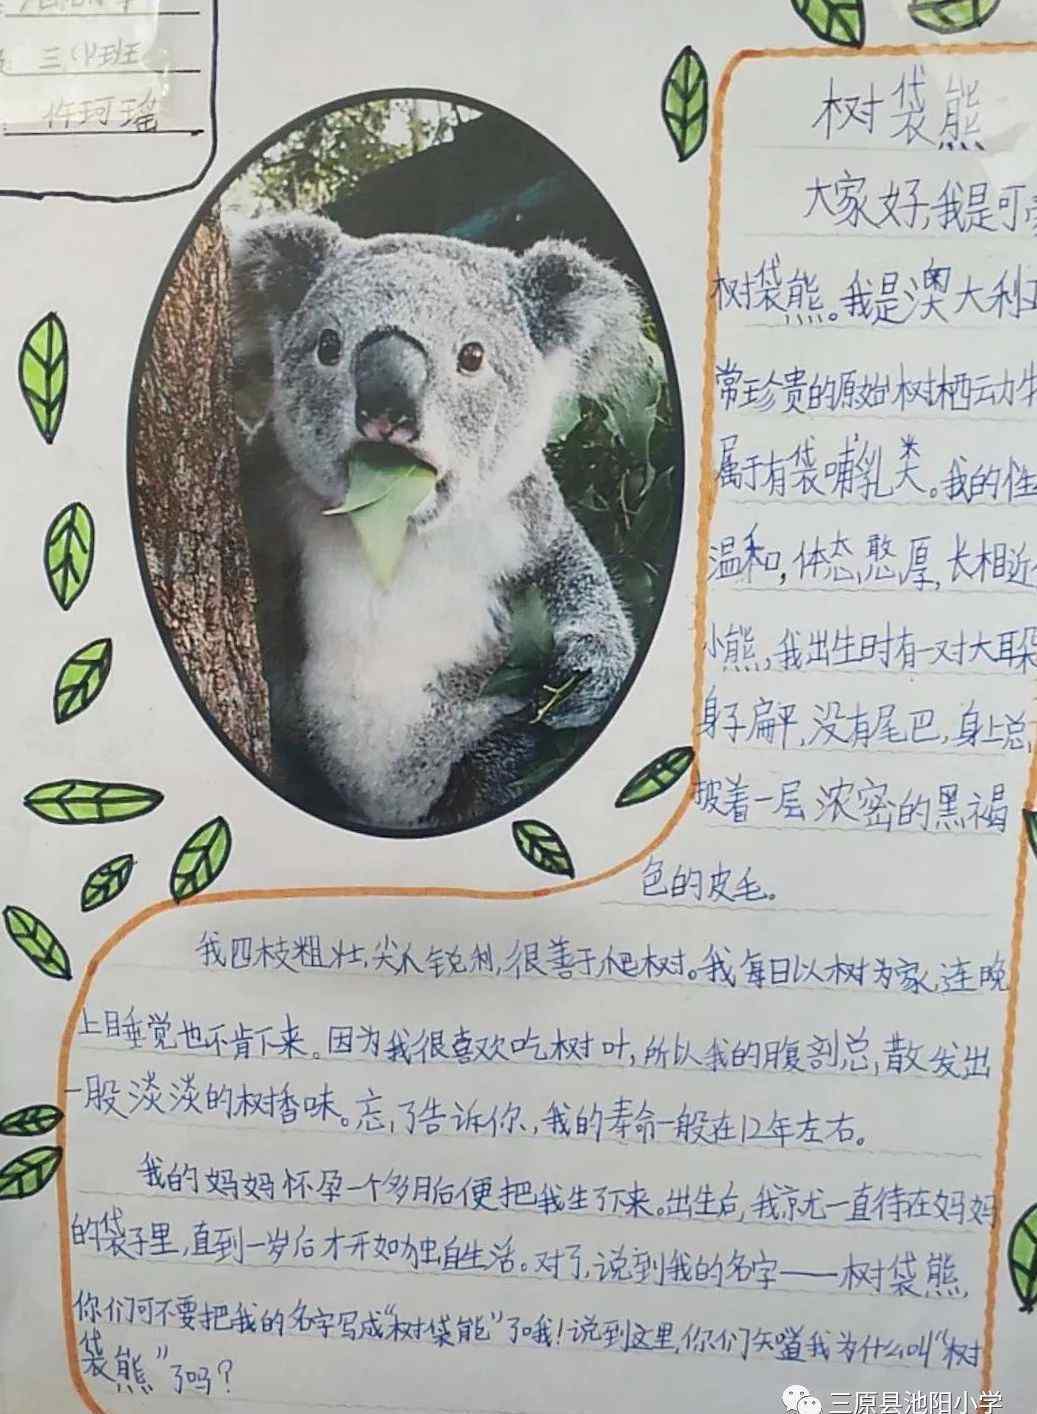 三(4)班
许珂瑶
树袋熊
大家好,我是可
树袋熊。我是澳大利
常珍贵的原始树栖动
属于有袋哺乳类。我的性
温和,体态憨厚,长相近
小熊,我出生时有一对大耳朵
身子扁平,没有尾巴,身上总
披着一层浓密的黑褐
色的皮毛。
我四枝粗壮,尖爪锐利,很善于爬树。我每日以树为家,连晚
上目垂觉也不肯下来。因为我很喜欢吃树叶,所以我的腹剖总,散发出
一股淡淡的树香味。忘,了告诉你,我的寿命一般在12年左右。
我的妈妈怀孕一个多月后便把我生了下来。出生后,我就一直待在妈妈
的袋子里,直到一岁后才开始独自生活。对了,说到我的名字——树袋熊,
你们可不要把我的名字写成“树袋能”了哦!说到这里,你们知道我为什么叫“树
袋熊”了吗?
三原县池阳小学